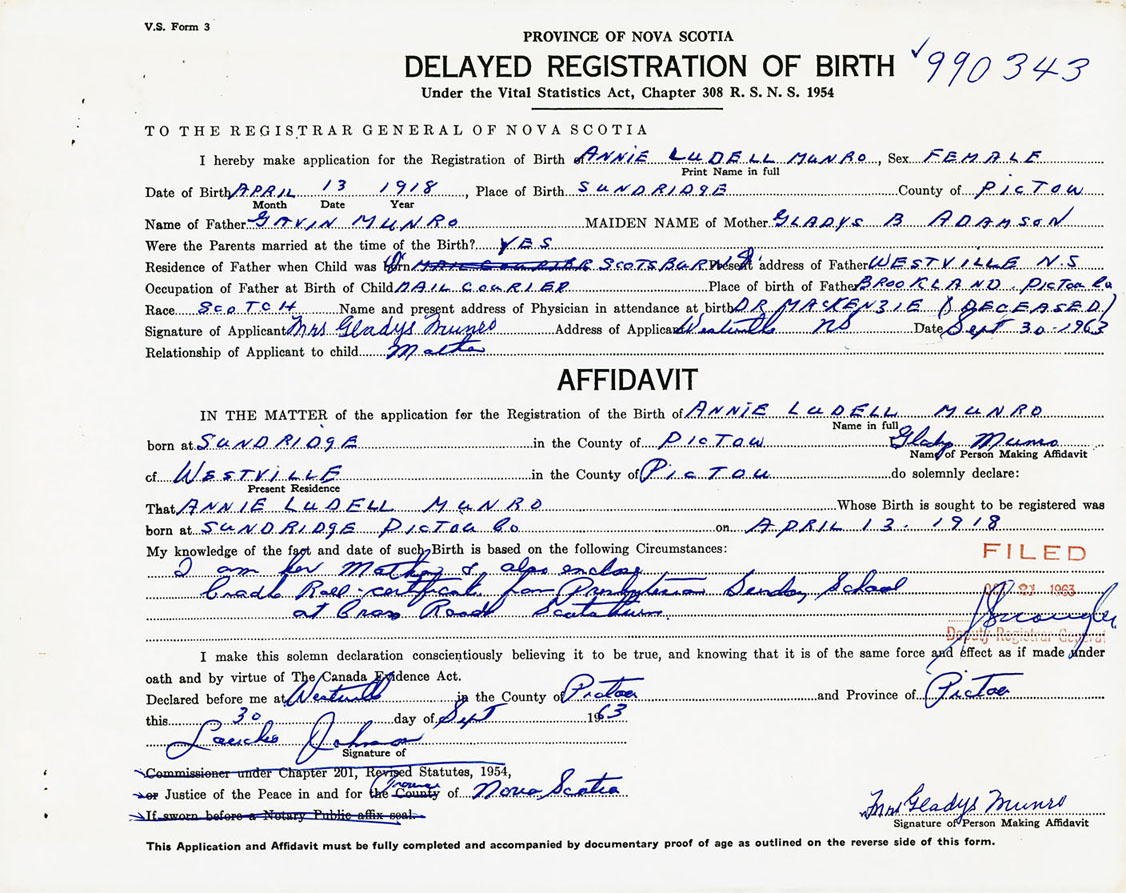 V.S. Form 3
PROVINCE OF NOVA SCOTIA
DELAYED REGISTRATION OF BIRTH ✓990343
Under the Vital Statistics Act, Chapter 308 R. S. N. S. 1954
TO THE REGISTRAR GENERAL OF NOVA SCOTIA
I hereby make application for the Registration of Birth of ANNIE LUDELL MUNRO, Sex FEMALE
Print Name in full
Date of Birth APRIL 13 1918, Place of Birth SUNDRIDGE County of PICTOU
Month Date Year
Name of Father GAVIN MUNRO MAIDEN NAME of Mother GLADYS B ADAMSON
Were the Parents married at the time of the Birth? YES
Residence of Father when Child was Born MAIL COURIER SCOTSBURN Present address of Father WESTVILLE N.S
Occupation of Father at Birth of Child MAIL COURIER Place of birth of Father BROOKLAND PICTOU Co
Race SCOTCH Name and present address of Physician in attendance at birth DR MACKENZIE (DECEASED)
Signature of Applicant Mrs Gladys Munro Address of Applicant Westville NS Date Sept 30-1963
Relationship of Applicant to child Mother
AFFIDAVIT
IN THE MATTER of the application for the Registration of the Birth of ANNIE LUDELL MUNRO
Name in full
born at SUNDRIDGE in the County of PICTOU Gladys Munro
Name of Person Making Affidavit
of WESTVILLE in the County of PICTOU do solemnly declare:
Present Residence
That ANNIE LUDELL MUNRO Whose Birth is sought to be registered was
born at SUNDRIDGE PICTOU Co on APRIL 13. 1918
My knowledge of the fact and date of such Birth is based on the following Circumstances:
FILED
I am her Mother & also enclose
Cradle Roll certificate from Presbyterian Sunday School
OCT 21 1963
at Cross Roads Scotsburn
Deputy Registrar General
I make this solemn declaration conscientiously believing it to be true, and knowing that it is of the same force and effect as if made under
oath and by virtue of The Canada Evidence Act.
Declared before me at Westville in the County of Pictou and Province of Pictou
this 30 day of Sept 1963
Johnson
Signature of
Commissioner under Chapter 201, Revised Statutes, 1954,
or Justice of the Peace in and for the County Province of Nova Scotia
If sworn before a Notary Public affix seal.
Mrs Gladys Munro
Signature of Person Making Affidavit
This Application and Affidavit must be fully completed and accompanied by documentary proof of age as outlined on the reverse side of this form.